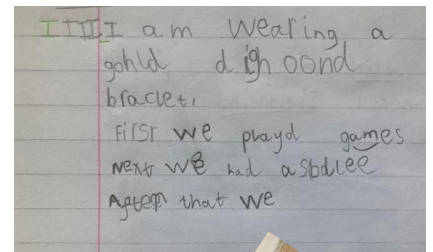 I am wearing a
gohld dighoond
braclet,
First we playd games
Next we had a
After that we